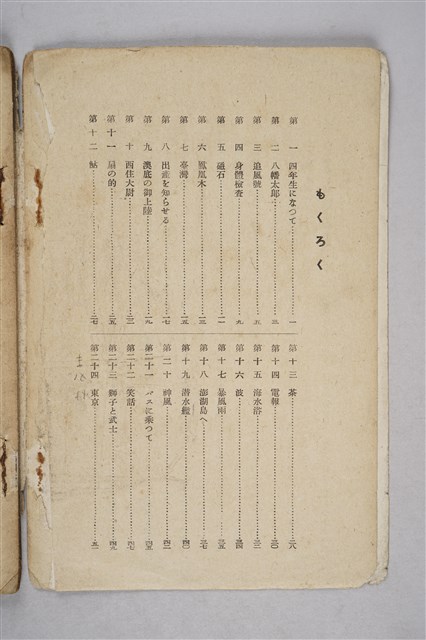 もくろく
第一 四年生になつて 一
第二 八幡太郎 三
第三 追風號 五
第四 身體檢査 九
第五 磁石 一一
第六 鳳凰木 一三
第七 臺灣 一五
第八 出産を知らせる 一七
第九 澳底の御上陸 一九
第十 西住大尉 二二
第十一 扇の的 二五
第十二 鮎 二七
第十三 茶 二八
第十四 電報 三〇
第十五 海水浴 三二
第十六 波 三四
第十七 暴風雨 三五
第十八 澎湖島へ 三七
第十九 潜水艦 四〇
第二十 神風 四二
第二十一 バスに乘つて 四五
第二十二 笑話 四七
第二十三 獅子と武士 四九
第二十四 東京 五一